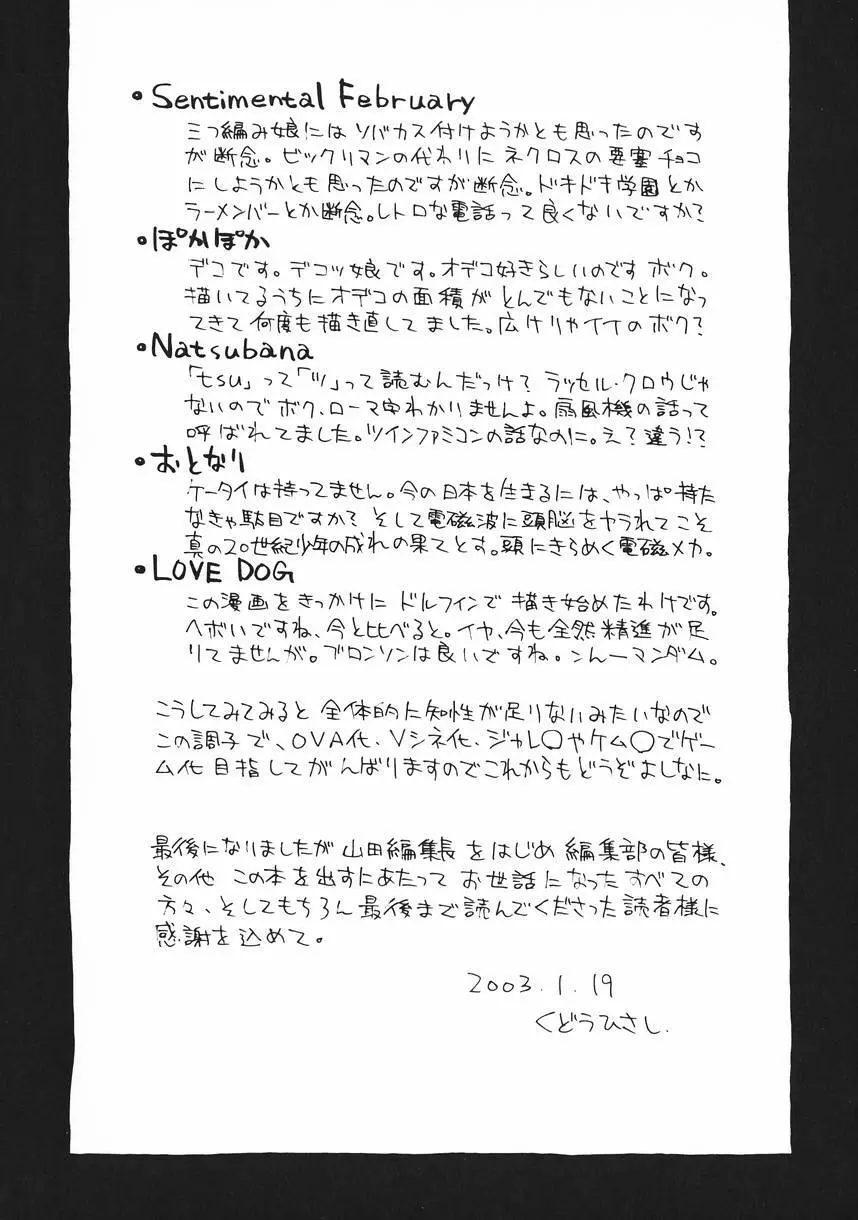 ・Sentimental February
三つ編み娘にはソバカス付けようかとも思ったのです
が断念。ビックリマンの代わりにネクロスの要塞チョコ
にしようかとも思ったのですが断念。ドキドキ学園とか
ラーメンバーとか断念。レトロな電話って良くないですか?
・ぽかぽか
デコです。デコッ娘です。オデコ好きらしいのですボク。
描いてるうちにオデコの面積がとんでもないことになっ
てきて何度も描き直してました。広けりゃイイのボク?
・Natsubana
「tsu」って「ツ」って読むんだっけ?ラッセル・クロウじゃ
ないのでボク、ローマ字わかりませんよ。扇風機の話って
呼ばれてました。ツインファミコンの話なのに。え?違う!?
・おとなり
ケータイは持ってません。今の日本を生きるには、やっぱ持た
なきゃ駄目ですか?そして電磁波に頭脳をヤラれてこそ
真の20世紀少年の成れの果てとす。頭にきらめく電磁メカ。
・LOVE DOG
この漫画をきっかけにドルフィンで描き始めたわけです。
ヘボいですね、今と比べると。イヤ、今も全然精進が足
りてませんが。ブロンソンは良いですね。んんーマンダム。
こうしてみてみると全体的に知性が足りないみたいなので
この調子で、OVA化、Vシネ化、ジャレ〇やケム〇でゲー
ム化目指してがんばりますのでこれからもどうぞよしなに。
最後になりましたが山田編集長をはじめ編集部の皆様、
その他この本を出すにあたってお世話になったすべての
方々、そしてもちろん最後まで読んでくださった読者様に
感謝を込めて。
2003.1.19
くどうひさし.